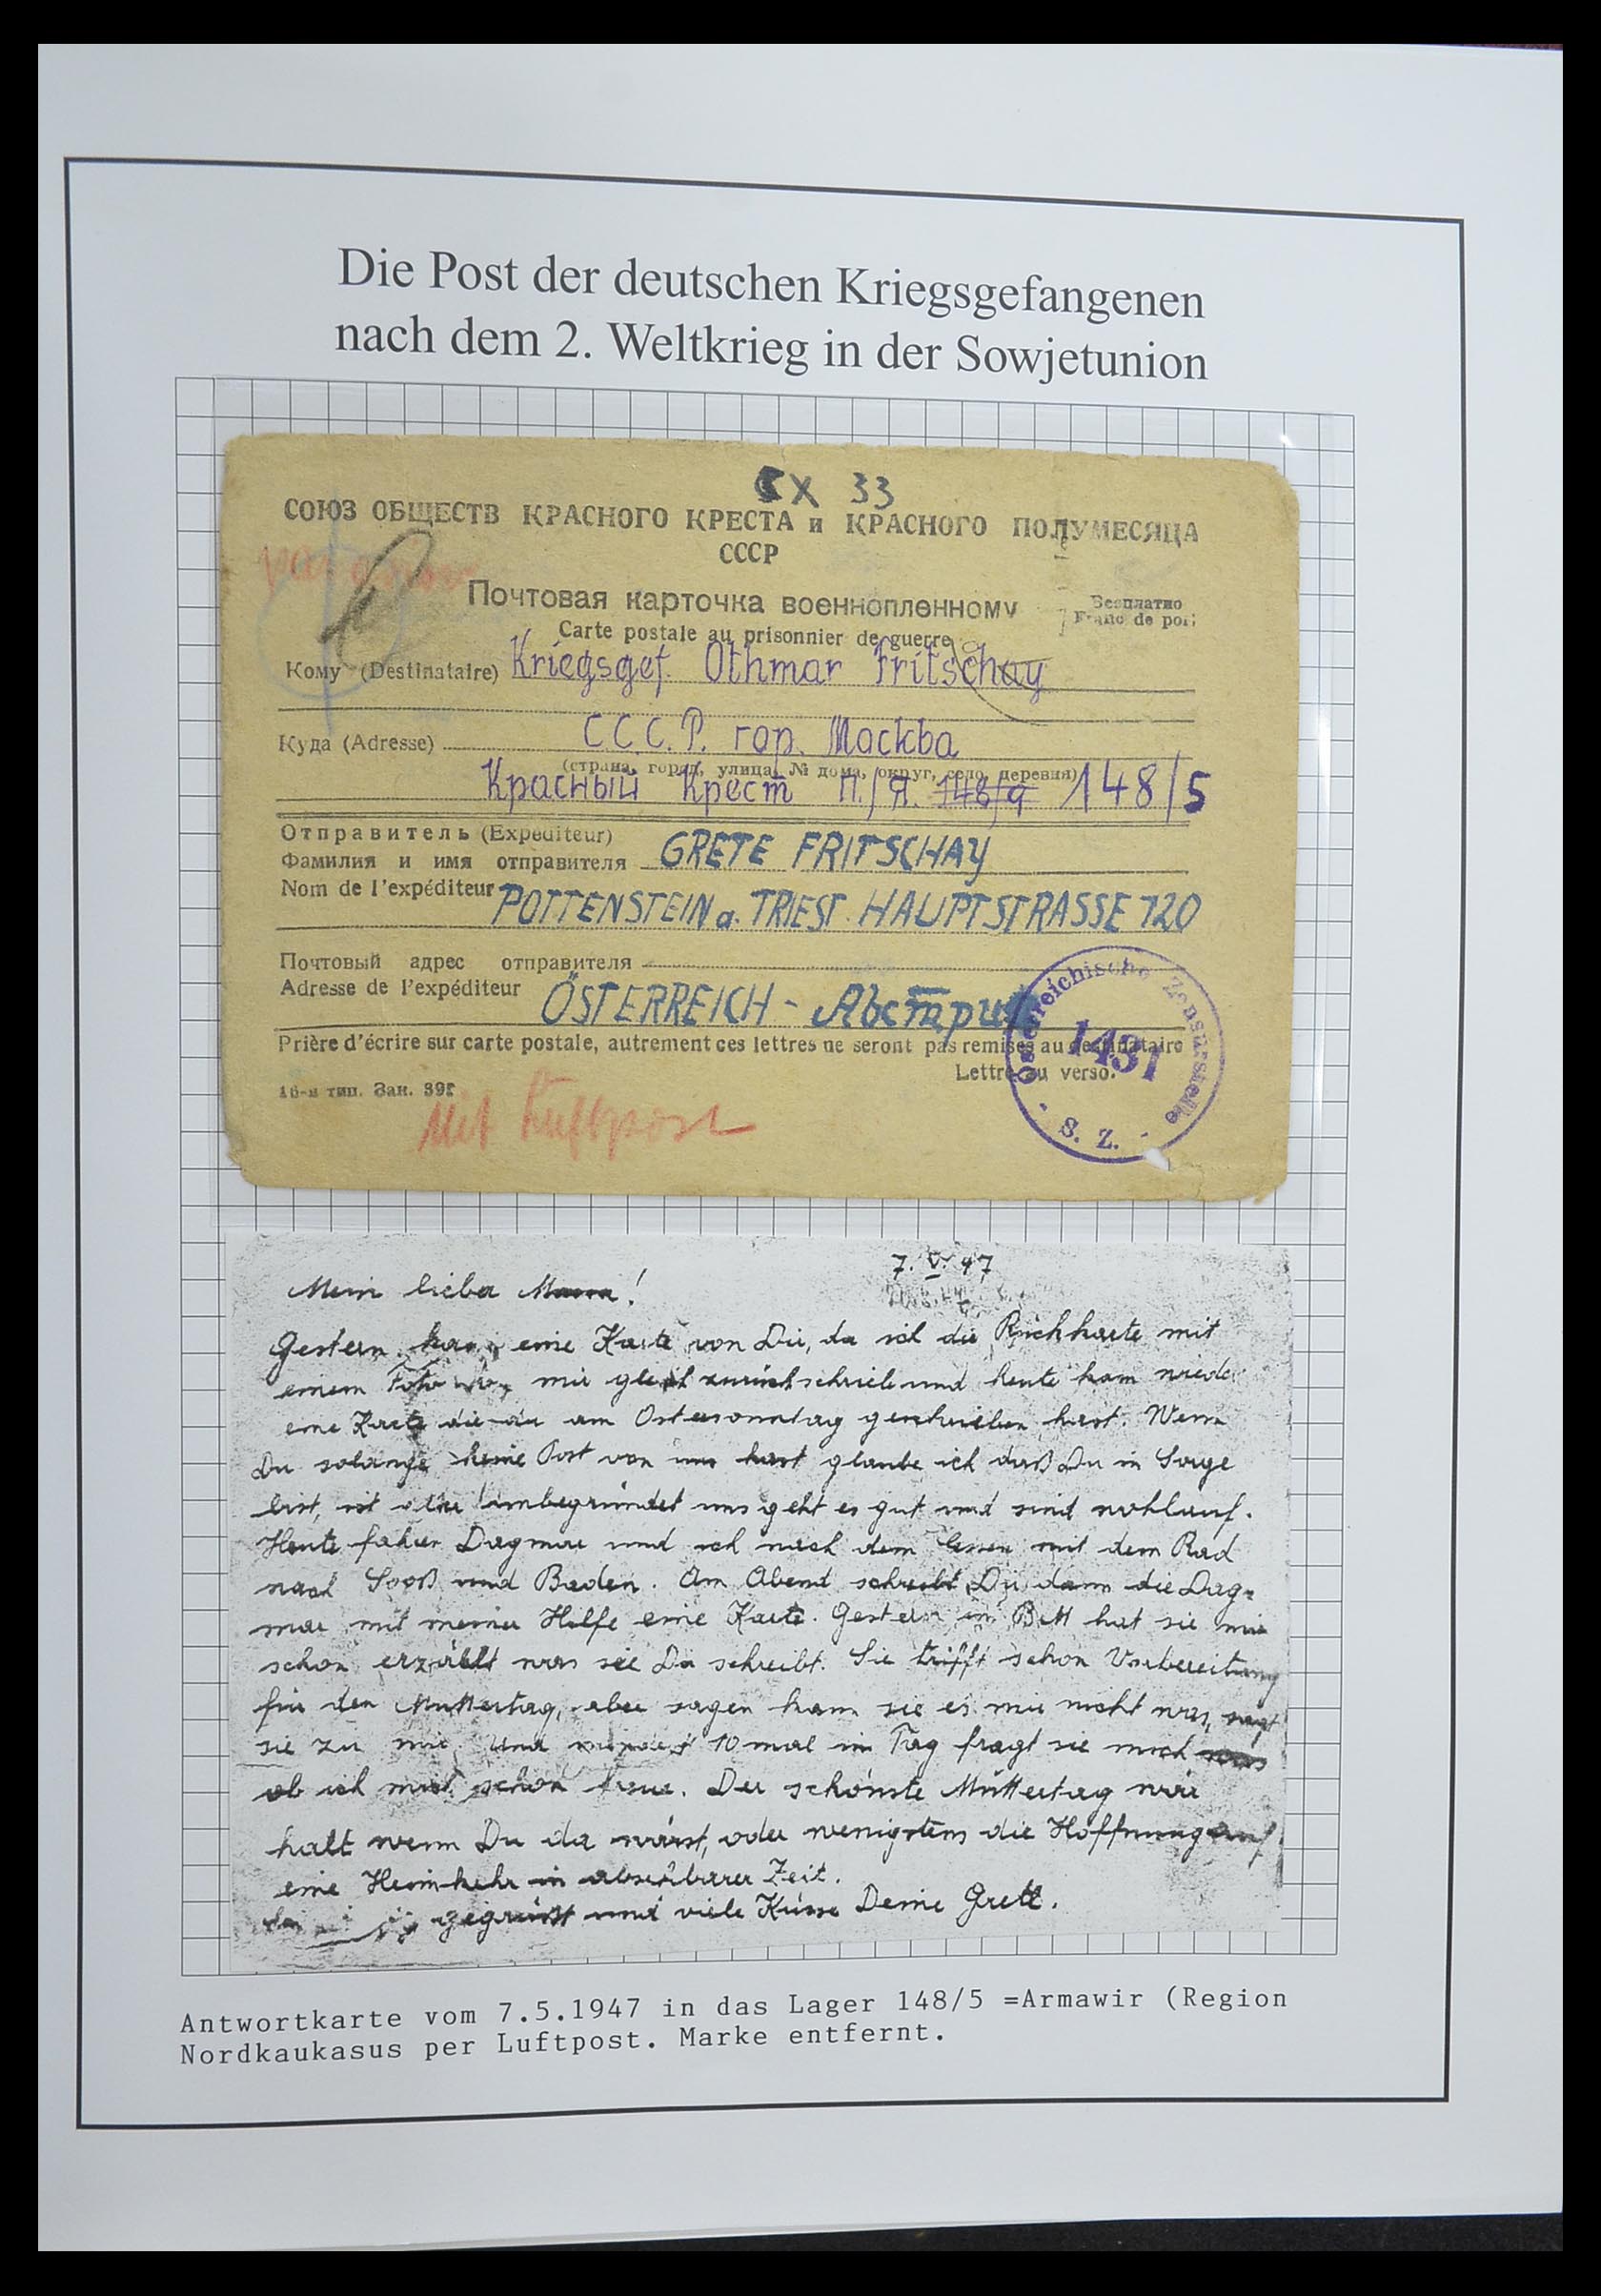 Die Post der deutschen Kriegsgefangenen
nach dem 2. Weltkrieg in der Sowjetunion
X 33
СОЮЗ ОБЩЕСТВ КРАСНОГО КРЕСТА и КРАСНОГО ПОЛУМЕСЯЦА
СССР
Почтовая карточка военнопленному
Бесплатно
Franc de port
Carte postale au prisonnier de guerre
Кому (Destinataire) Kriegsgef. Othmar Fritschay
Куда (Adresse) С.С.С.Р. гор. Москва
(страна, город, улица, № дома, округ, село, деревня)
Красный Крест П./Я. 148/9 148/5
Отправитель (Expéditeur)
Фамилия и имя отправителя GRETE FRITSCHAY
Nom de l'expéditeur POTTENSTEIN a. TRIEST. HAUPTSTRASSE 120
Почтовый адрес отправителя
Adresse de l'expéditeur ÖSTERREICH -
Prière d'écrire sur carte postale, autrement ces lettres ne seront pas remises au destinataire
Lettre au verso.
16-я тип. Зак. 395
Mit Luftpost
Österreichische Zensurstelle
1431
S. Z.
7. V. 47
Mein lieber !
Gestern kam eine Karte von Dir, da ich die Rückkarte mit
einem Foto mir gleich zurückschrieb und heute kam wieder
eine Karte die du am Ostersonntag geschrieben hast. Wenn
Du solange keine Post von uns hast glaube ich daß Du in Sorge
bist, ist aber unbegründet uns geht es gut und sind wohlauf.
Heute fahren Dagmar und ich nach dem Essen mit dem Rad
nach Sooß und Baden. Am Abend schreibt Dir dann die Dag-
mar mit meiner Hilfe eine Karte. Gestern im Bett hat sie mir
schon erzählt was sie Dir schreibt. Sie trifft schon Vorbereitung
für den Muttertag, aber sagen kann sie es mir nicht was, sagt
sie zu mir. Und 10 mal im Tag fragt sie mich
ob ich mich schon freue. Der schönste Muttertag wär
halt wenn Du da wärst, oder wenigstens die Hoffnung auf
eine Heimkehr in absehbarer Zeit.
gegrüßt und viele Küsse Deine Gretl.
Antwortkarte vom 7.5.1947 in das Lager 148/5 =Armawir (Region
Nordkaukasus per Luftpost. Marke entfernt.